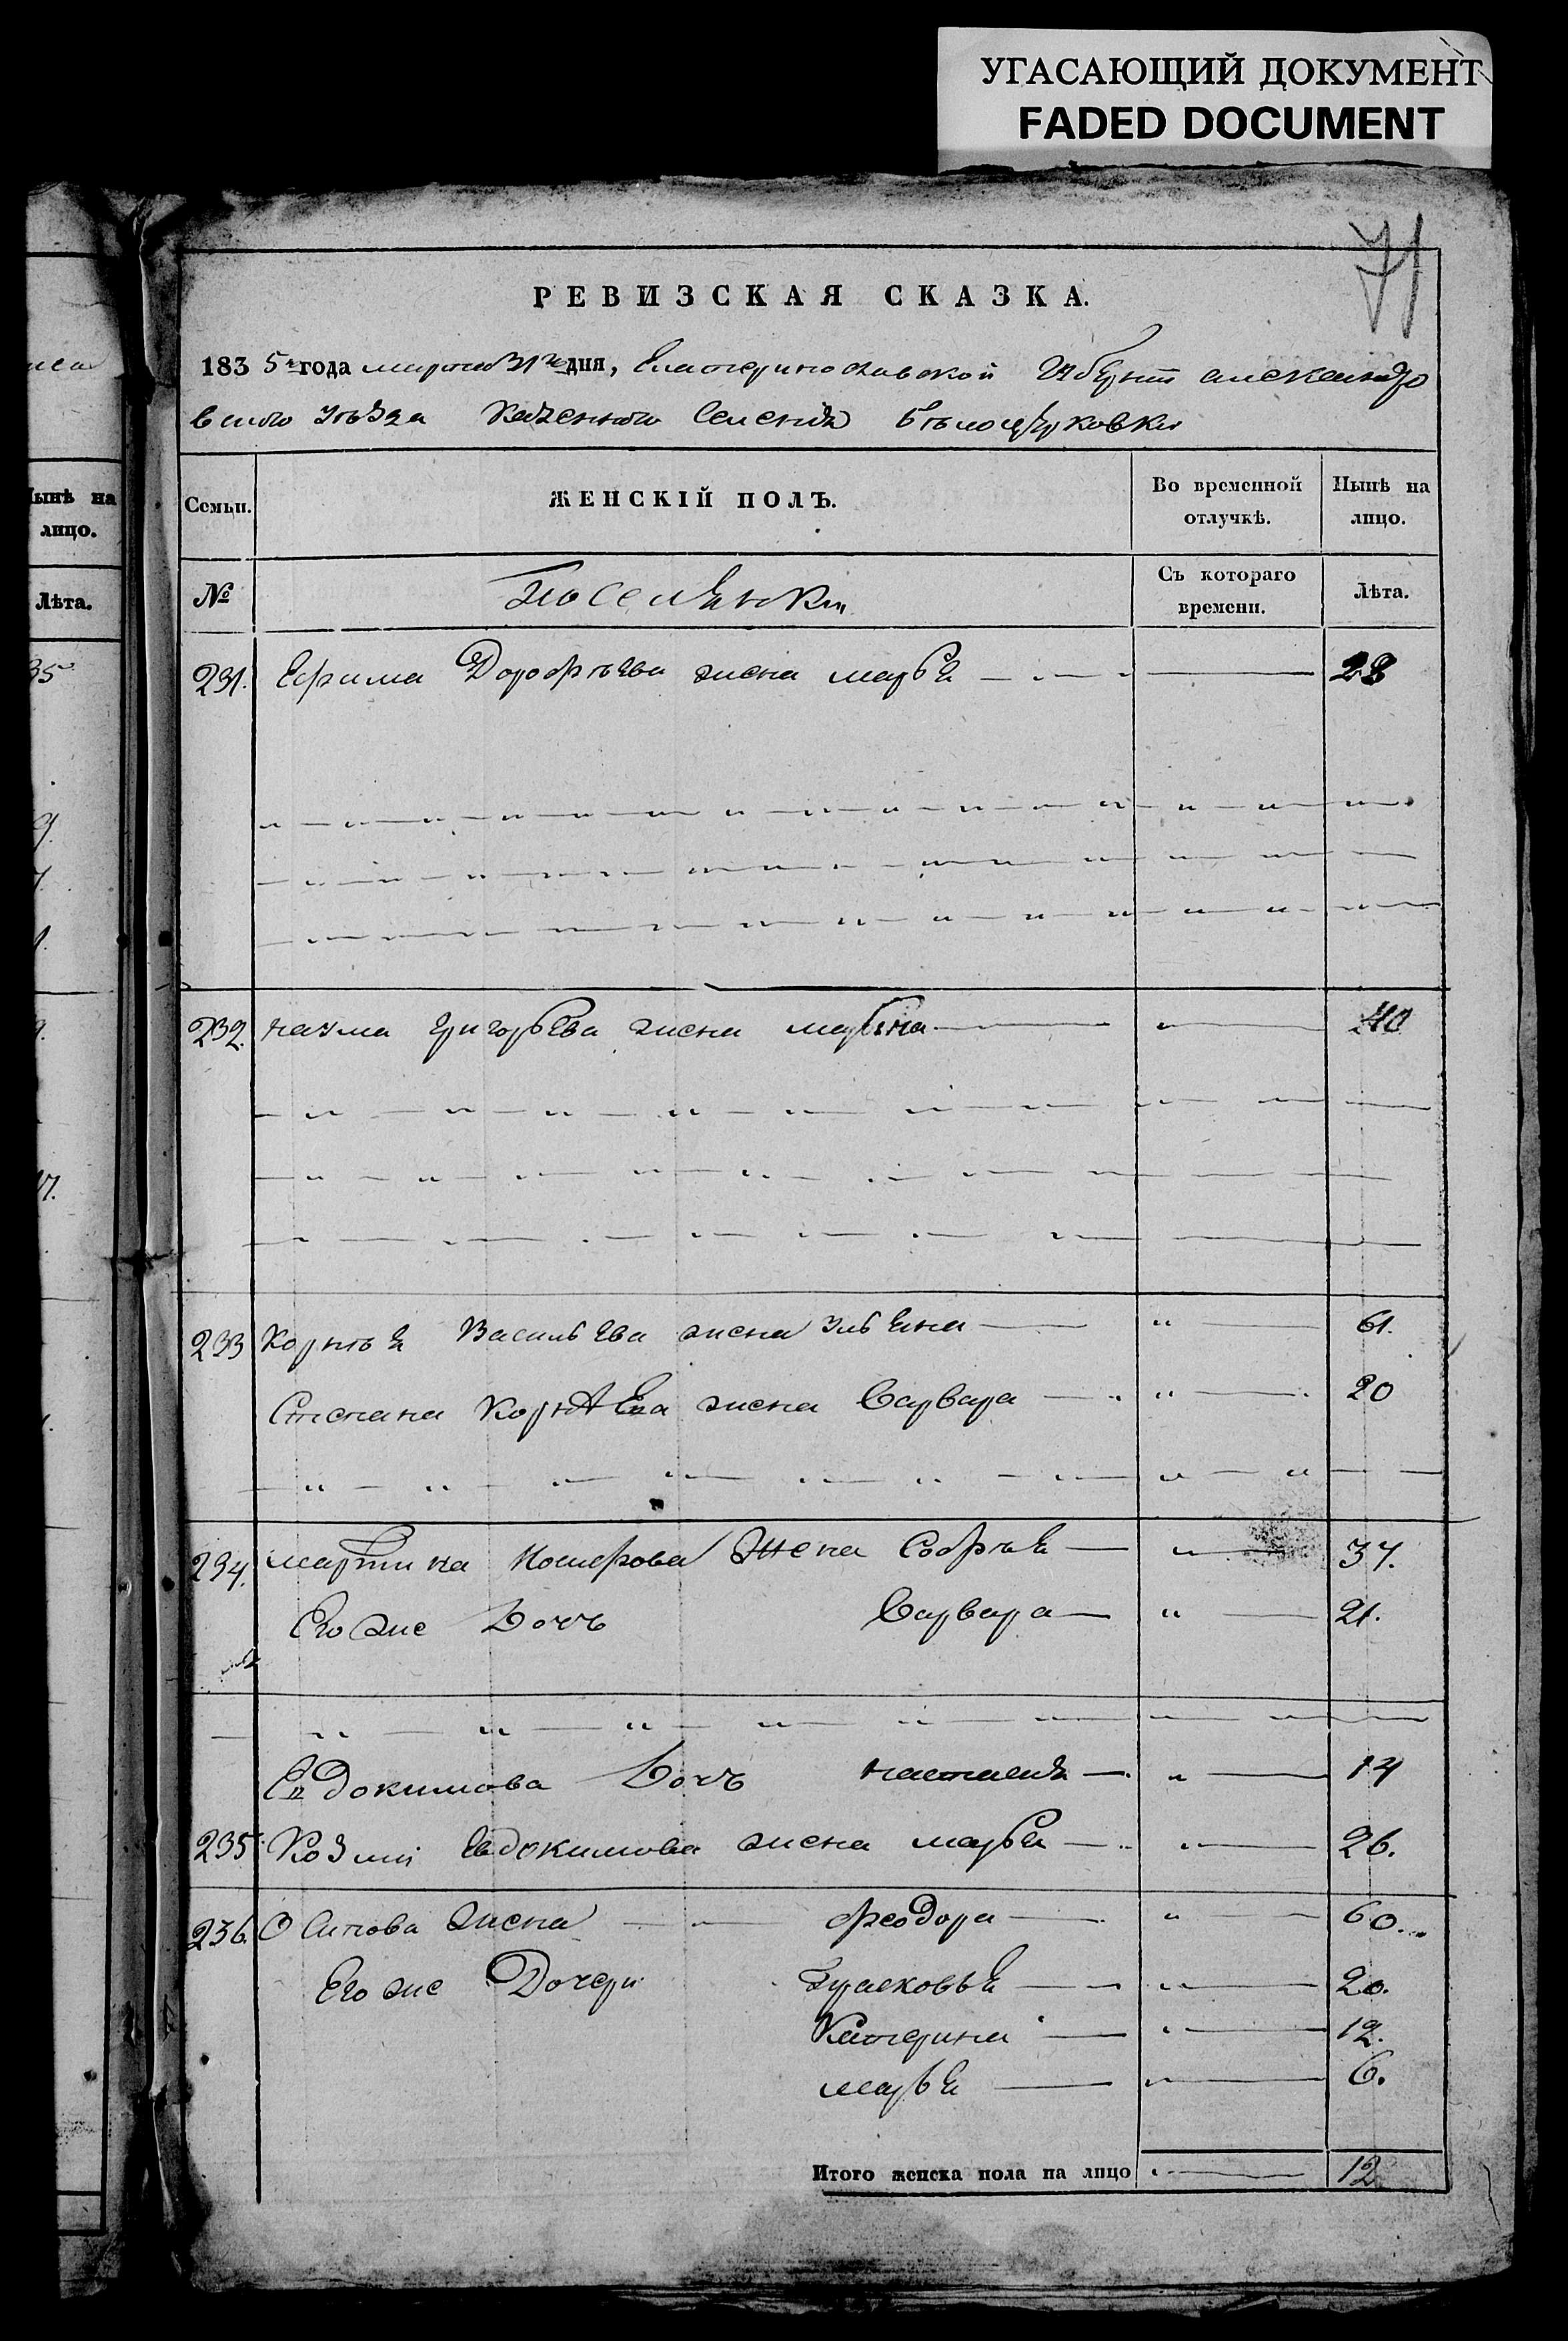 УГАСАЮЩИЙ ДОКУМЕНТ
FADED DOCUMENT
71
РЕВИЗСКАЯ СКАЗКА.
183 5го года марта 31го дня, Екатеринославской Губерніи александро
вского уѣзда Казенного Селенія бѣлоцерковки
Семьи. ЖЕНСКІЙ ПОЛЪ. Во временной отлучкѣ. Нынѣ на лицо.
№ Поселянки Съ котораго времени. Лѣта.
Нынѣ на
лицо.
Лѣта.
35
231. Ефима Дорофѣева жена марья 28
232. наума григорьева жена марина 40
233 Корнѣя Васильева жена ульяна 61.
Степана Корнѣева жена Варвара 20
234. мартина жена Софья 37.
Его же дочь Варвара 21.
Евдокимова дочь настасия 14
235 Козми Евдокимова жена марья 26.
236. Осипова жена феодора 60.
Его же Дочери Прасковья 20.
Катерина 12.
марья 6.
Итого женска пола на лицо 12